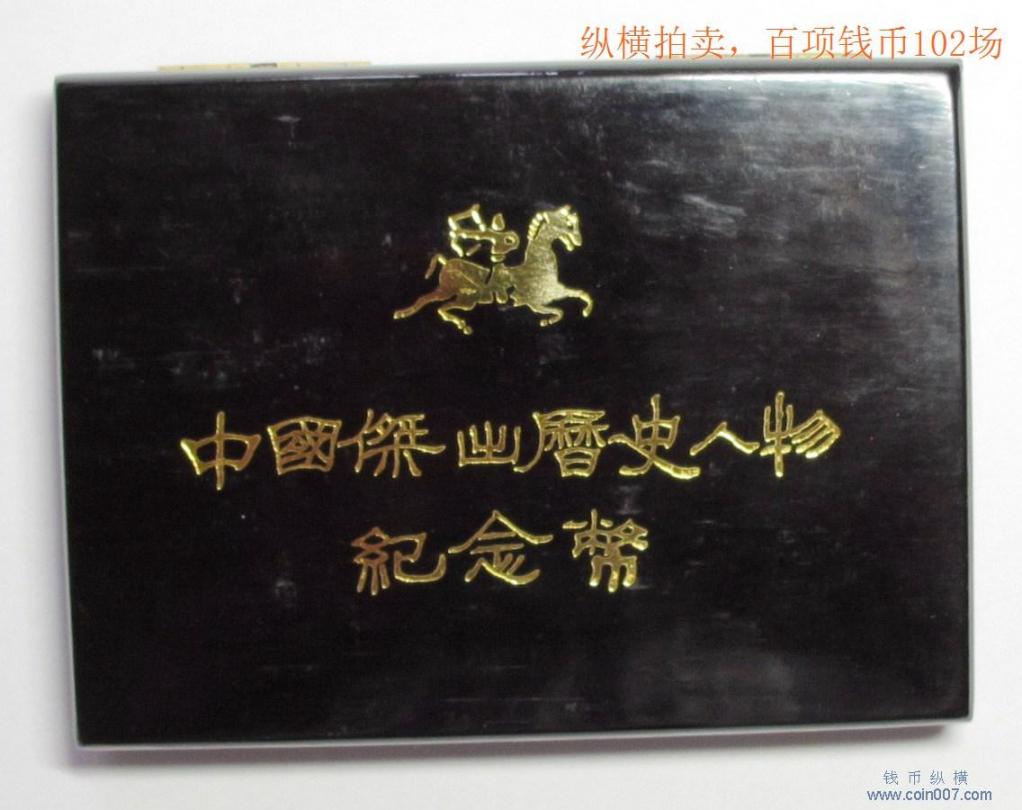 纵横拍卖，百项钱币102场
中國傑出曆史人物
紀念幣
钱币纵横
www.coin007.com